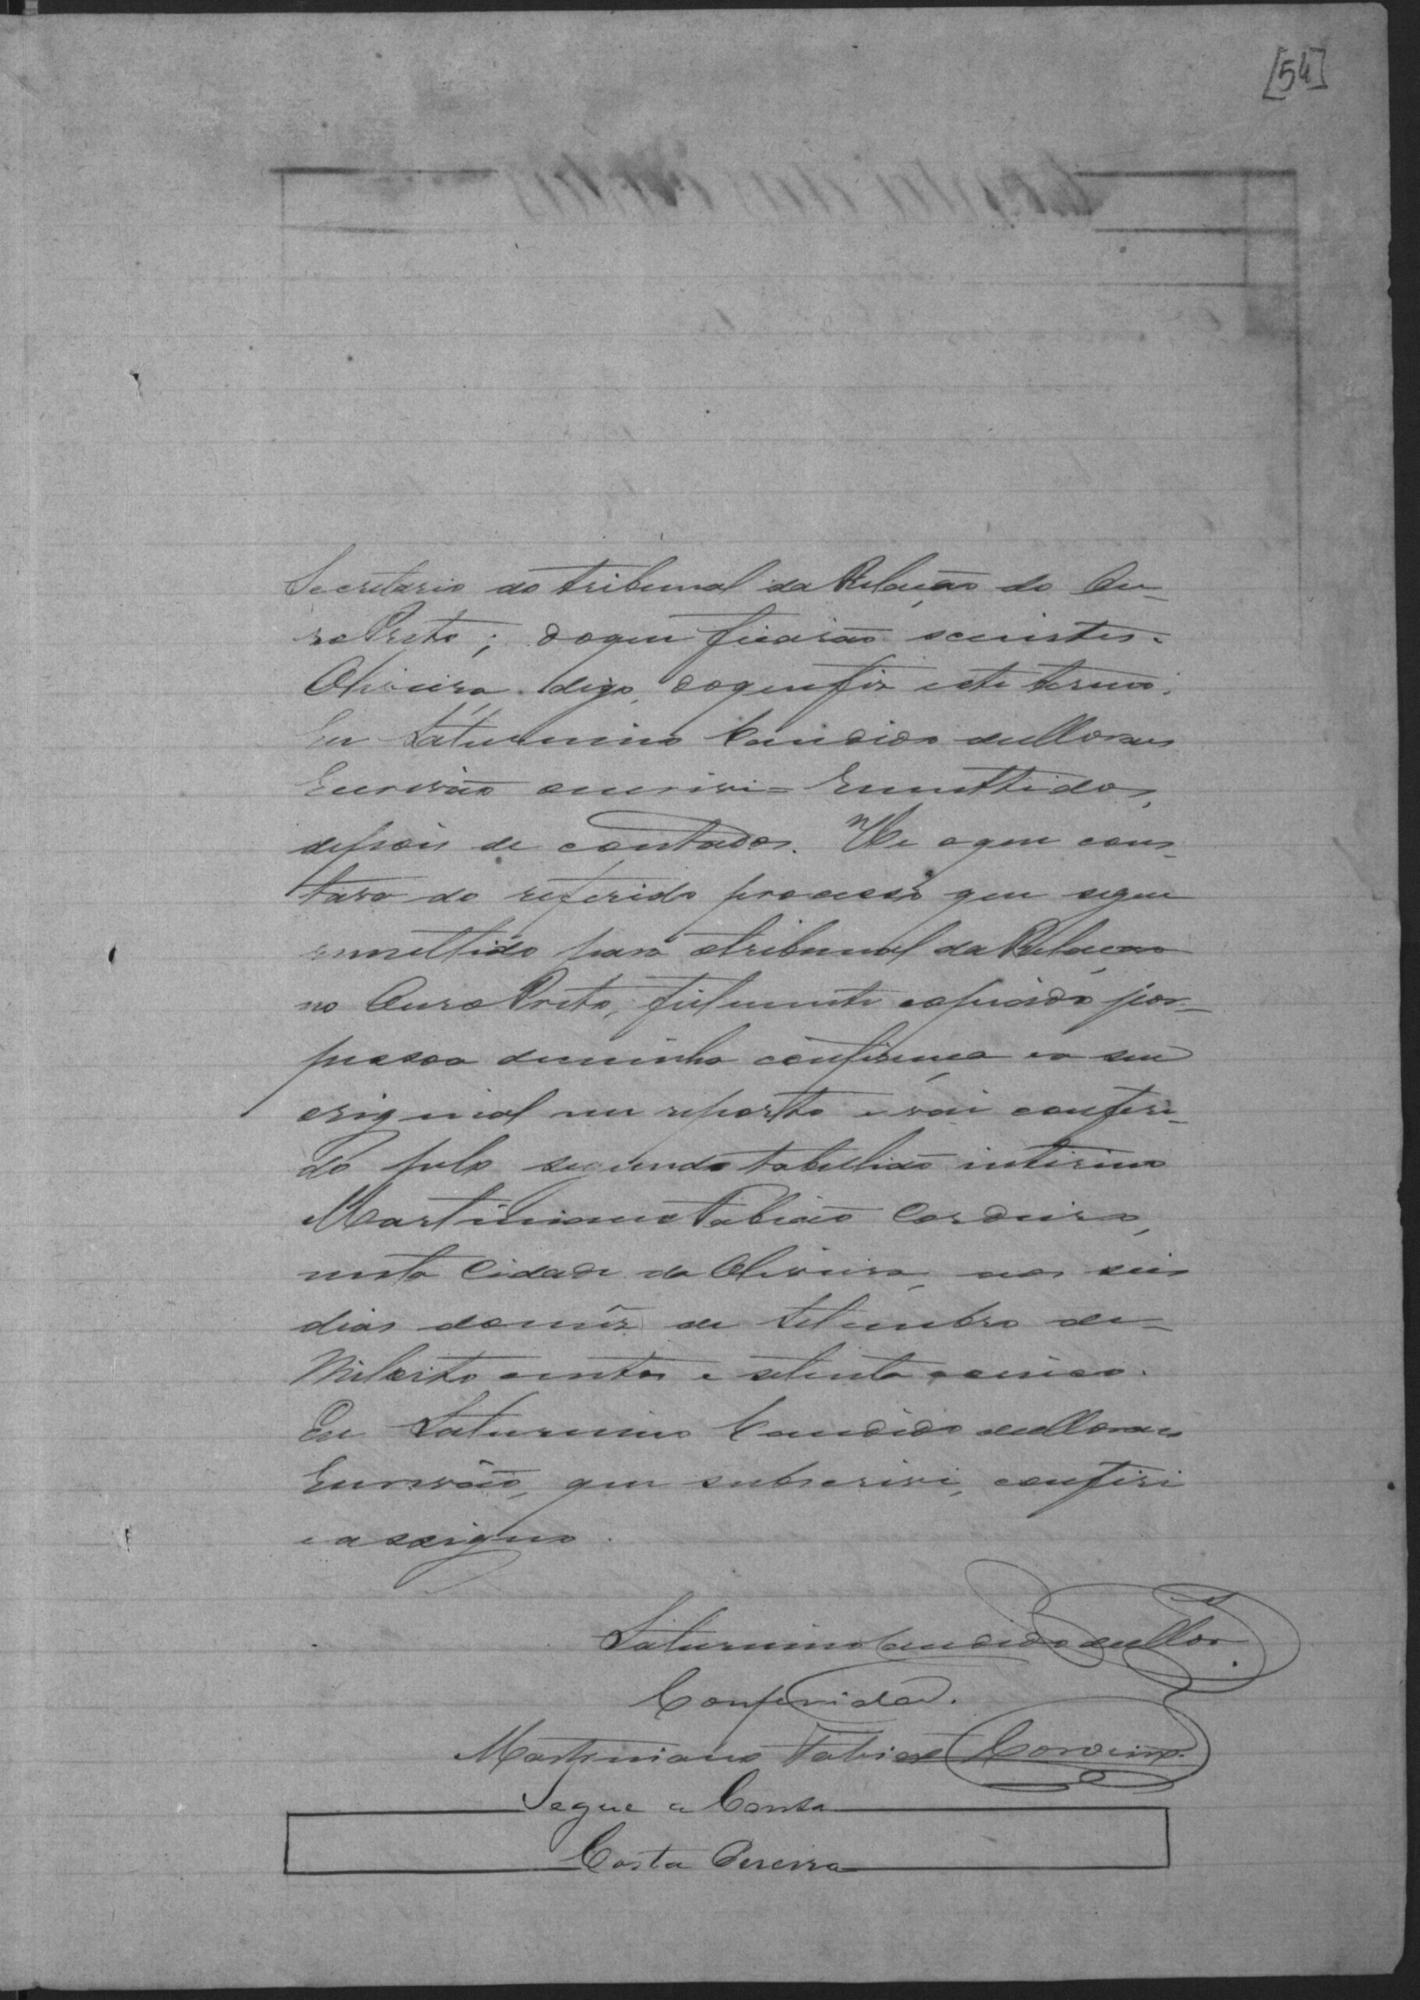 [54]
Secretario do tribunal da Relação do Ou-
ro Preto; do que ficarão scientes.
Oliveira, digo, do que fiz este termo.
Eu Saturnino Candido de Moraes
Escrivão escrivi = Remettidos,
depois de contados. "He o que cons-
tava do referido processo que segue
remettido para o tribunal da Relacão
no Ouro Preto, fielmente copiado por
pessoa de minha confiança e a seu
original me reporto e vai conferi-
do pelo segundo tabellião interino
Martiniano Fabião Cordeiro,
nesta Cidade da Oliveira, aos seis
dias do mês de Setembro de
Mil oito centos e setenta e cinco.
Eu Saturnino Candido de Moraes
Escrivão, que subscrivi, conferi
e assigno.
Saturnino Candido de Mor.
Conferida.
Martiniano Fabião Cordeiro.
Segue a Conta
Costa Pereira